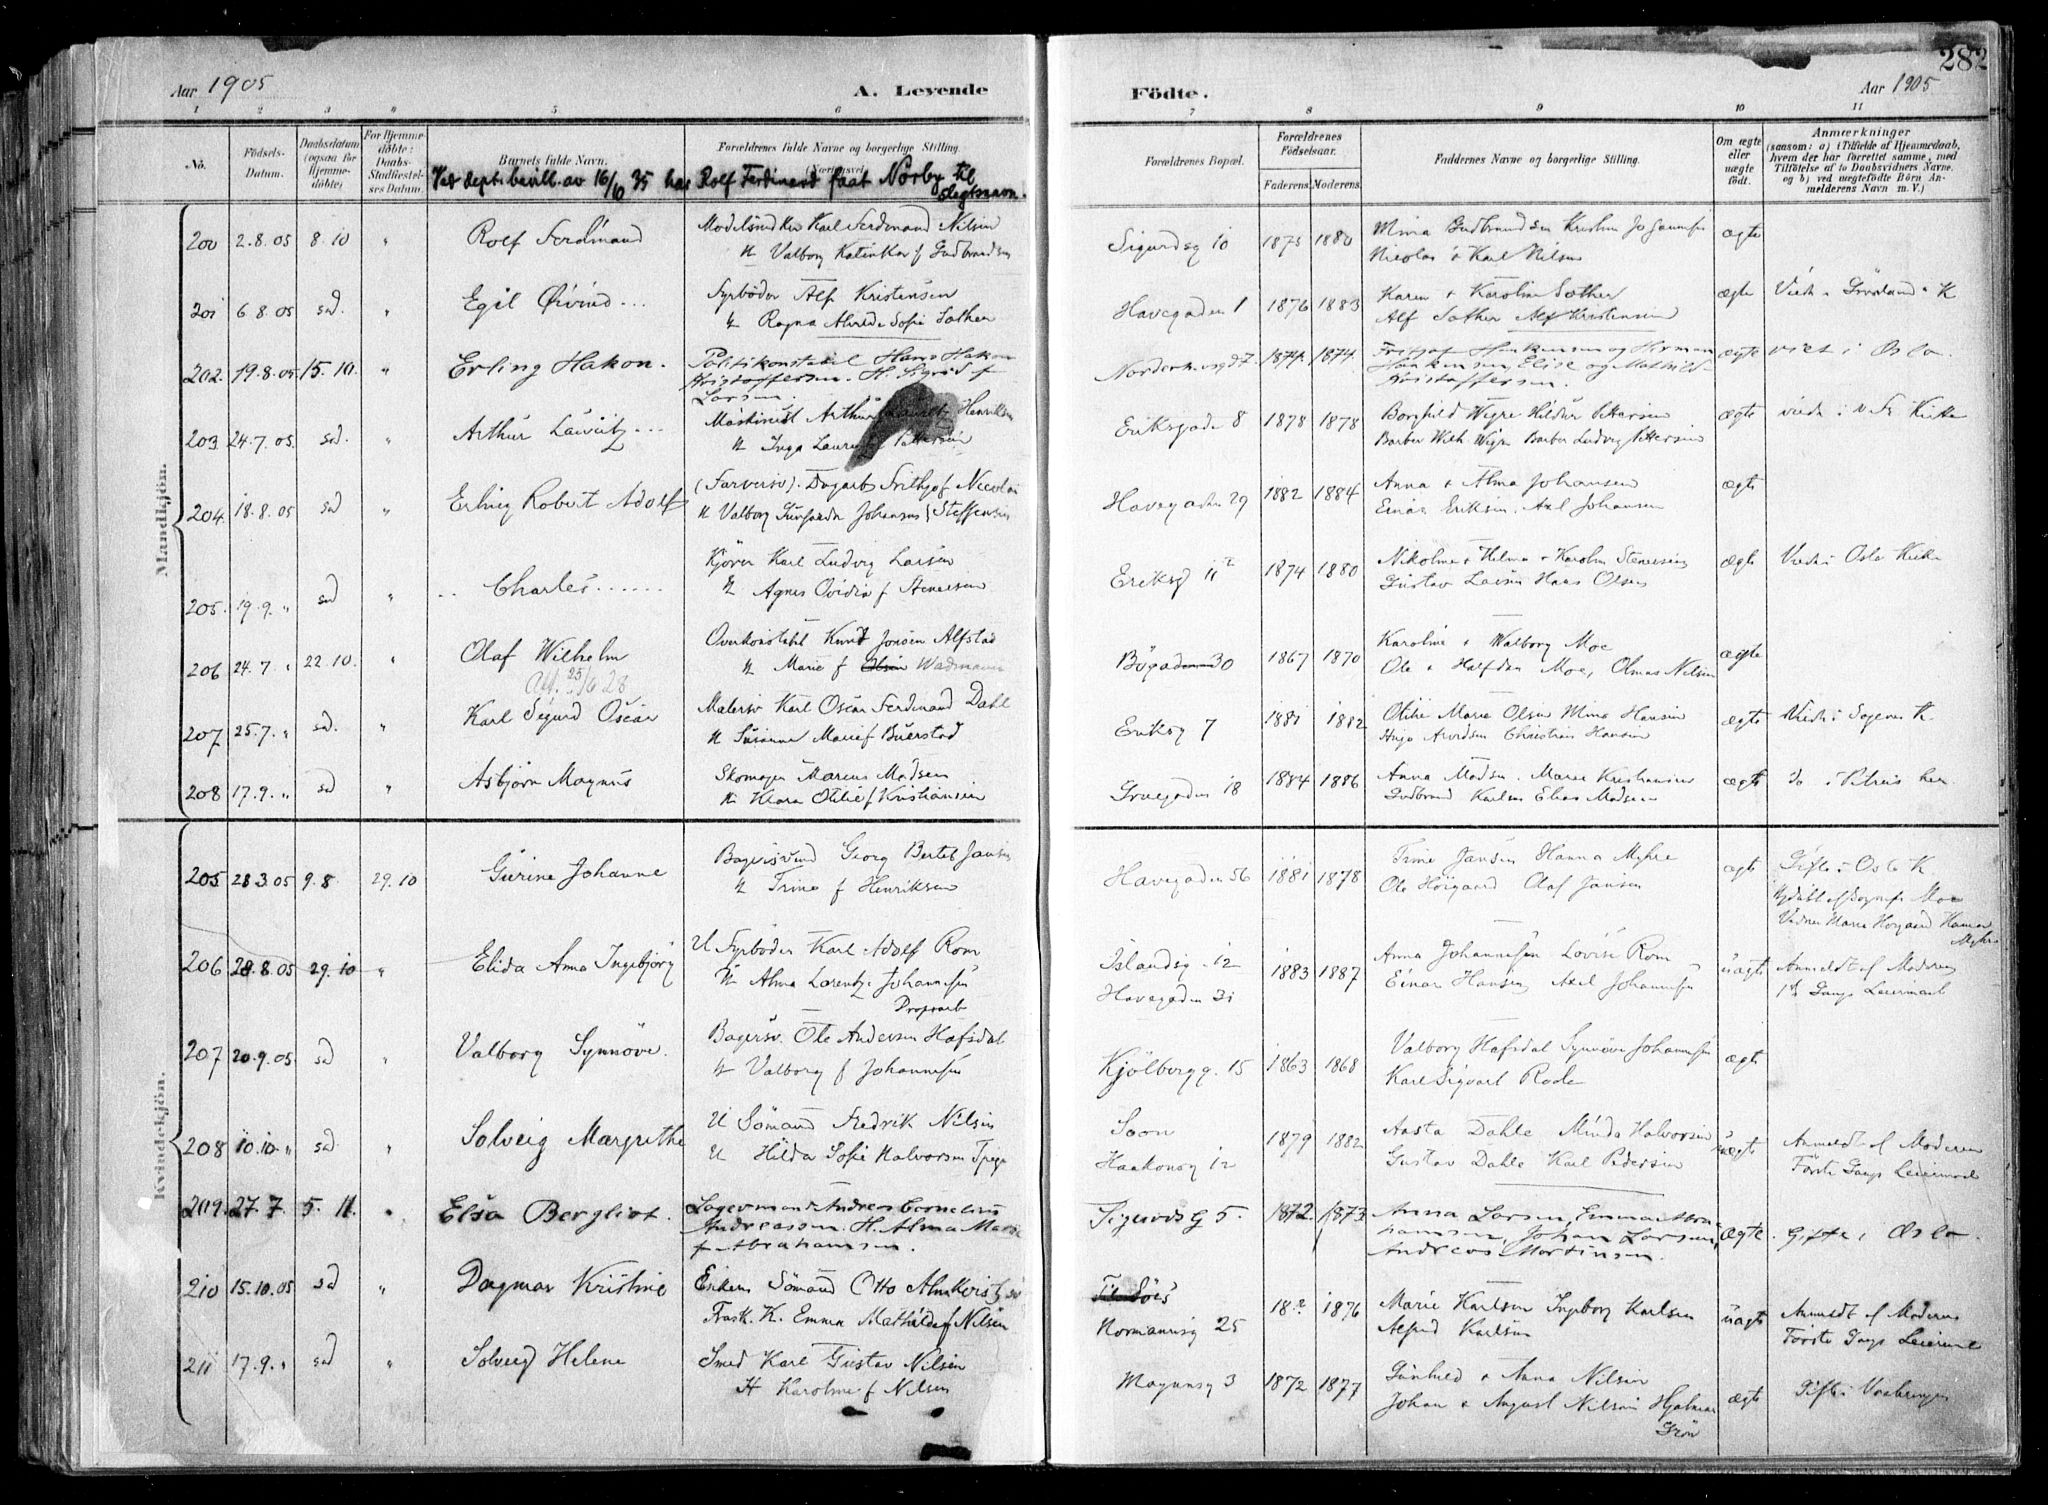 282
Aar 1905
A. Levende
Födte.
Aar 1905
1 2 3 4 5 6 7 8 9 10 11
No.
Födsels-Datum.
Daabsdatum (ogsaa for Hjemme-döbte)
For Hjemme-döbte: Daabs-Stadfæstel-ses Datum.
Barnets fulde Navn.
Forældrenes fulde Navne og borgerlige Stilling.
Forældrenes Bopæl.
Forældrenes Födselsaar.
Faderens. Moderens.
Faddernes Navne og borgerlige Stilling.
Om ægte eller uægte födt.
Anmærkninger
(saasom: a) i Tilfælde af Hjemmedaab,
hvem der har forrettet samme, med
Tilföielse af to Daabsvidners Navne,
og b) ved uægtefödte Börn An-
melderens Navn m. V.)
Ved dept. bevill. av 16/6 35 har Rolf Ferdinand faat Nörby til slegtsnavn.
Mandkjön.
200 2.8.05 8.10 " Rolf Ferdinand
Karl Ferdinand Nilsen
Valborg Katinka f Gudbrandsen
Sigurdsg 10 1875 1880
Nicolai & Karl Nilsen
ægte
201 6.8.05 sd. " Egil Öivind
Fyrböder Alf Kristensen
H Ragna Sofie Sather
Havegaden 1 1876 1883
Karen & Karoline Sather
Alf Sather Alf Kristensen
ægte
202. 19.8.05 15.10. " Erling Hakon.
Politikonstabel Hans Hakon
Kristoffersen. H. Sigrid f
Larsen.
1874. 1874.
Kristoffersen.
ægte viet i Oslo.
203 24.7.05. sd. " Arthur Lauritz
Maskinist Arthur Lauritz Henriksen
Eriksgaden 8 1878 1878
ægte
204. 18.8.05 sd " Erling Robert Adolf
(Farversv). Dagarb Frithjof Nicolai
Havegaden 29 1882 1884
Anna & Alma Johansen
Einar Eriksen. Axel Johansen
ægte
205. 19.9. " sd " Charles
Kjörer Karl Ludvig Larsen
Eriksg 11 1874 1880
Gustav Larsen Hans Olsen
ægte Viede i Oslo Kirke
206 24.7. " 22.10. " Olaf Wilhelm
Att. 25/6 28
Overkonstabel Knud Jonsen Alfstad
H Marie f Olsen
Bögaden 30 1867 1870
Karoline & Walborg Moe
Ole & Halfdan Moe, Nilsen
ægte
207 25.7. " sd. " Karl Sigurd Oscar
Malersv Karl Oscar Ferdinand Dahl
H Susanna Marie f Buerstad
Eriksg 7 1881 1882
Otilie Marie Olsen Mina Hansen
Christian Hansen
ægte Viede i Sagenes K.
208 17.9. " sd " Asbjörn Magnus
Skomager Marcus Madsen
H Klara Otilie f Kristiansen
Gruegaden 18 1884 1886
Anna Madsen. Marie Kristiansen
Gudbrand Karlsen Elias Madsen
ægte do i Petrus
Kvindekjön.
205 28.3.05 9.8 29.10 Gurine Johanne
Georg Bertel Jansen
H Trine f Henriksen
Havegaden 56 1881 1878
Trine Jansen Hanna Myhre
Ole Höigaard Olaf Jansen
ægte Gifte i Oslo K
206 28.8.05 29.10 " Elida Anna Ingebjörg
U Fyrböder Karl Adolf Rom
U Alma Lorentze Johannesen
Islandsg. 12
Havegaden 31
1883 1887
Anna Johannesen Lovise Rom
Einar Hansen Axel Johannesen
uægte Anmeldt af Moderen
1ste Gangs Leiermaal
207 20.9.05 sd " Valborg Synnöve.
Bagersv. Ole Andersen Hafsdal
H Valborg f Johannesen
Kjölbergg. 15 1863 1868
Valborg Hafsdal Synnöve Johannesen
Karl Sigvart Rode
ægte
208 10.10. " sd. " Solveig Margrethe
U Sömand Fredrik Nilsen
U Hilda Sofie Halvorsen Tpige
Soon
Haakonsg 12
1879 1882
Aasta Dahle Minda Halvorsen
Gustav Dahle Karl Pedersen
uægte Anmeldt af Moderen
Förste Gangs Leiermaal
209. 27.7. 5. 11. " Elsa Bergliot.
Lagermand Andreas Cornelius
Andreassen. H. Alma Marie
f Abrahamsen.
Sigurds G 5. 1872. 1873
Anna Larsen, Emma Abra-
hamsen, Johan Larsen,
Andreas Mortinsen.
ægte. Gifte i Oslo.
210 15.10.05 sd " Dagmar Kristine
Sömand Otto Almkvist
Frask. K. Emma Mathilde f Nilsen
Normannsg 25
18? 1876
Marie Karlsen Ingeborg Karlsen
Alfred Karlsen
uægte Anmeldt af Moderen
Förste Gangs Leiermaal
211 17.9. " sd " Solveig Helene
Smed Karl Gustav Nilsen
H Karoline f Nilsen
Magnusg 3 1872 1877
Gunhild & Anna Nilsen
Johan & August Nilsen Hjalmar
Grön
ægte Gifte i Vaalerengen